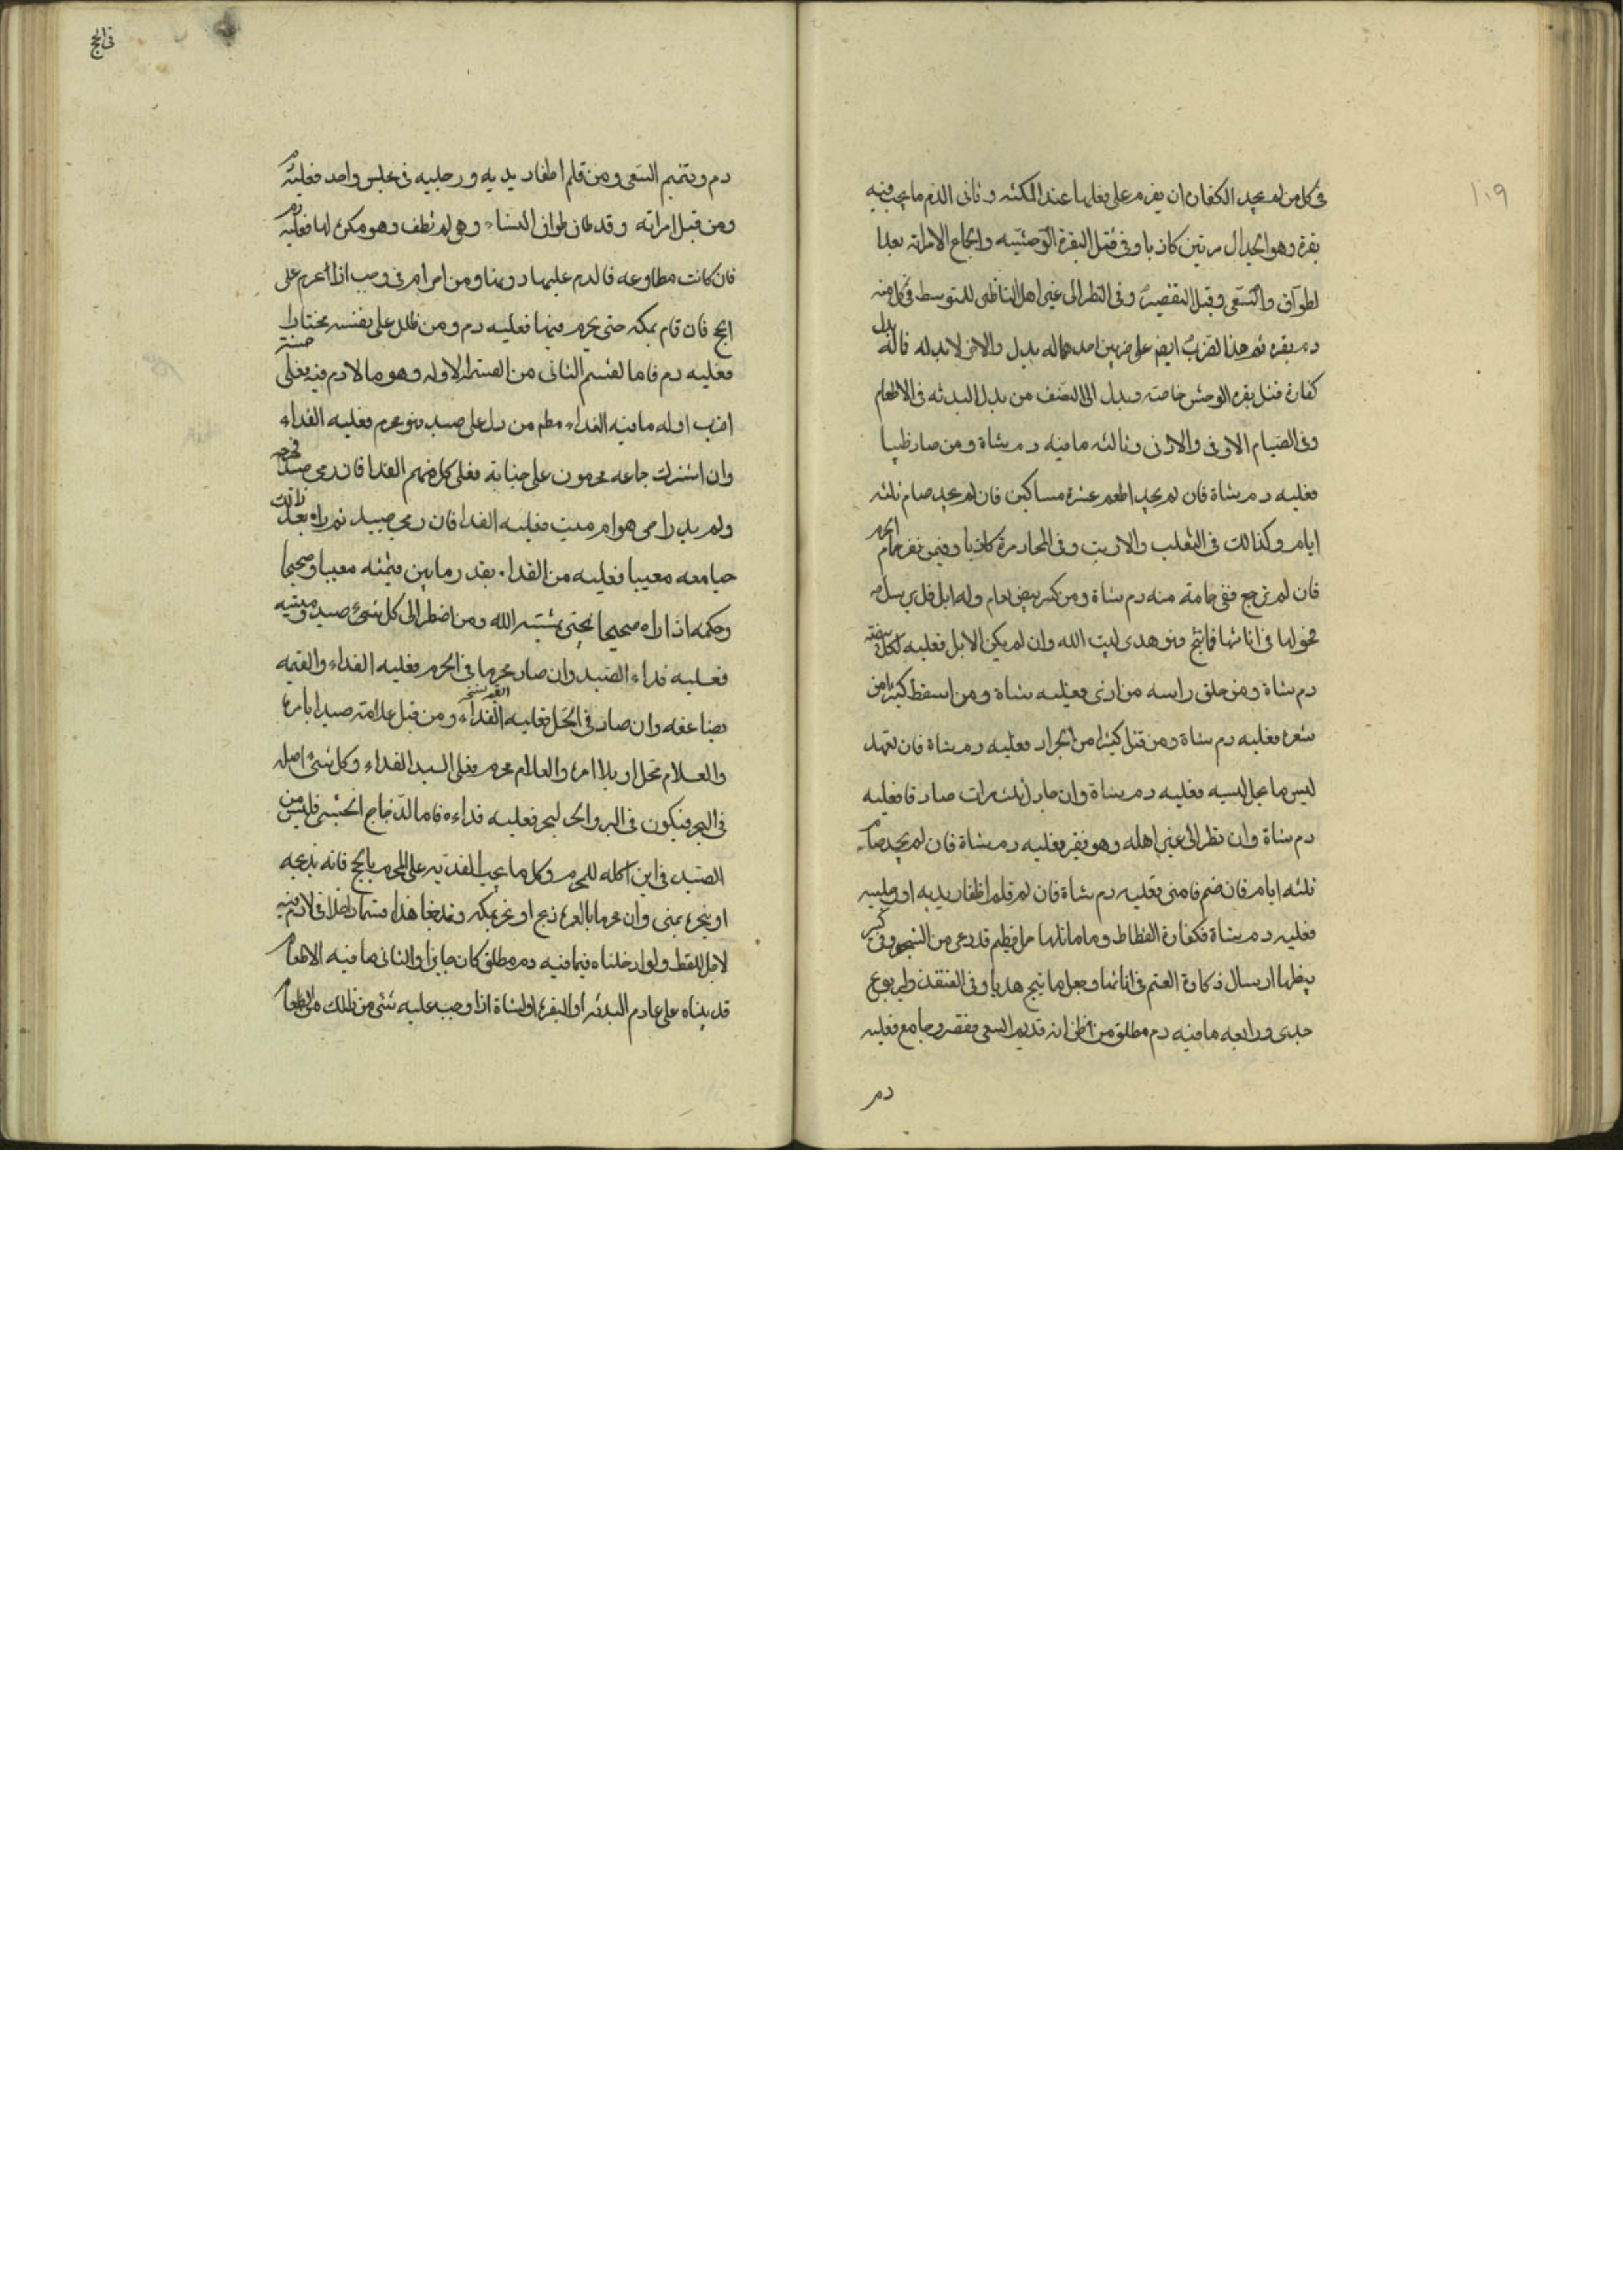 ١٠٩
في كل من لم يجد الكفارة ان يقوم على بغلها عند المكنه وثاني الدم ما يجب فيه
بقرة وهو الجدال مرتين كاذبا وفي قتل البقرة الوحشيه والجماع الامراته بعد
لطواف والسعى وقبل التقصير وفي النظر الى غير اهل الناظر للمتوسط في كل منه
دم بقره ثم هذا لضرب ايضم على ضربين احدهما له بدل والاخر لا بدله فاله بدل
كفارة قتل بقره الوحش خاصة وبدل الى النصف من بدل البدنه في الاطعام
وفي الصيام الاوفى والادنى وثالثه ما فيه دم شاة ومن صاد ظبيا
فعليه دم شاة فان لم يجد اطعم عشرة مساكين فان لم يجد صام ثلثه
ايام وكذالك في الثعلب والارنب وفي المجادمرة كاذبا وفيمن نفر حمام الحرم
فان لم ترجع ففي حمامة منه دم شاة ومن كسر بيض نعام وله ابل فل يرسل
فحولها في اناثها فما نتج فهو هدى لبيت الله وان لم يكن الابل فعليه لكل بيضة
دم شاة ومن حلق راسه من اذى فعليه شاة ومن اسقط كثيرا من
شعره فعليه دم شاة ومن قتل كثيرا من الجراد فعليه دم شاة فان تعمد
لبس ما يحل لبسه فعليه دم شاة وان جادل ثلث مرات صادقا فعليه
دم شاة وان نظر الى غير اهله وهو فقير فعليه دم شاة فان لم يجد صام
ثلثه ايام فان ضم فامنى فعليه دم شاة فان لم قلم اظفار يديه او رجليه
فعليه دم شاة فكفارة القطاط وما ماثلها حمل فطم قد رعى من الشجر وفي كسر
بيضها ارسال ذكارة الغنم في اناثها وجعل ما ينتج هديا وفي القنفذ واليربوع
جدى ورابعه ما فيه دم مطلق من ظن انه قد تم السعى فقصر وجامع فعليه
دم
في الحج
دم ويتمم السعى ومن قلم اظفار يديه ورجليه في مجلس واحد فعليه دم
ومن قبل امراته وقد طاف طواف النساء وهى لم تطف وهو مكره لها فعليه دم
فان كانت مطاوعه فالدم عليها دونها ومن امرامر في وجب اذا احرم على
الحج فان قام بمكه حتى يحرم فيها فعليه دم ومن ظلل على نفسه مختارا
فعليه دم فاما لقسم الثانى من القسمة الاوله وهو ما لا دم فيه فعلى خمسة
اضرب اوله ما فيه الفداء مطم من دل على صيد وهو محرم فعليه الفداء
وان اشترك جماعه محرمون على جنايه فعلى كل منهم الفدا فان رمى صيدا فجرحه
ولم يدر احى هو ام ميت فعليه الفدا فان رمى صيد ثم راه بعد ذالك
حيا معه معيبا فعليه من الفداء بقدر ما بين قيمته معيبا وصحيحا
وحكمه اذا راه صحيحا يجئ بمشيه الله ومن اضطر الى كل شئ صيد وميته
فعليه فداء الصيد وان صاد محرما في الحرم فعليه الفداء والقيمه
مضاعفه وان صاد في الحل فعليه الفداء ومن قبل علامته صيدا بامره
والغلام محل او بلا امره والغلام محرم فعلى السيد الفداء وكل شئ اصله
في البحر فيكون في البر والبحر فعليه فداءه فاما الدجاج الحبشى فليس من
الصيد في اين اكله للمحرم وكل ما يجب الفديه على المحرم بالحج فانه يذبحه
او ينحره بمنى وان محرما بالعمره ذبح او نحر بمكه
لاجل اللفظ ولو ادخلناه فيما فيه دم مطلق كان جايزا والثانى ما فيه الاطعام
قد بيناه على عادم البدنه او البقره او الشاة اذا وجب عليه شئ من ذلك